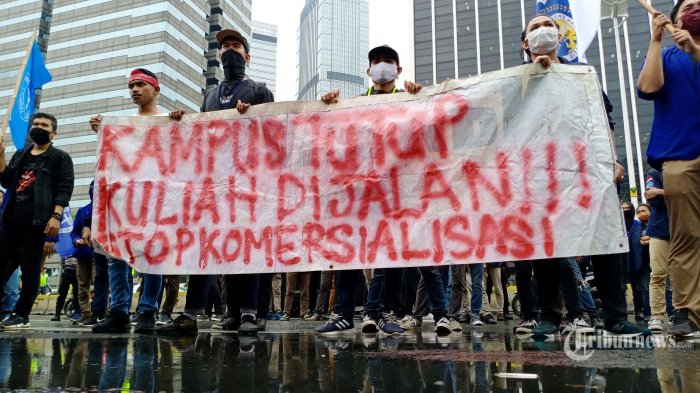 KAMPUS TUTUP
KULIAH DIJALAN!!!
STOP KOMERSIALISASI
Tribunnews.com